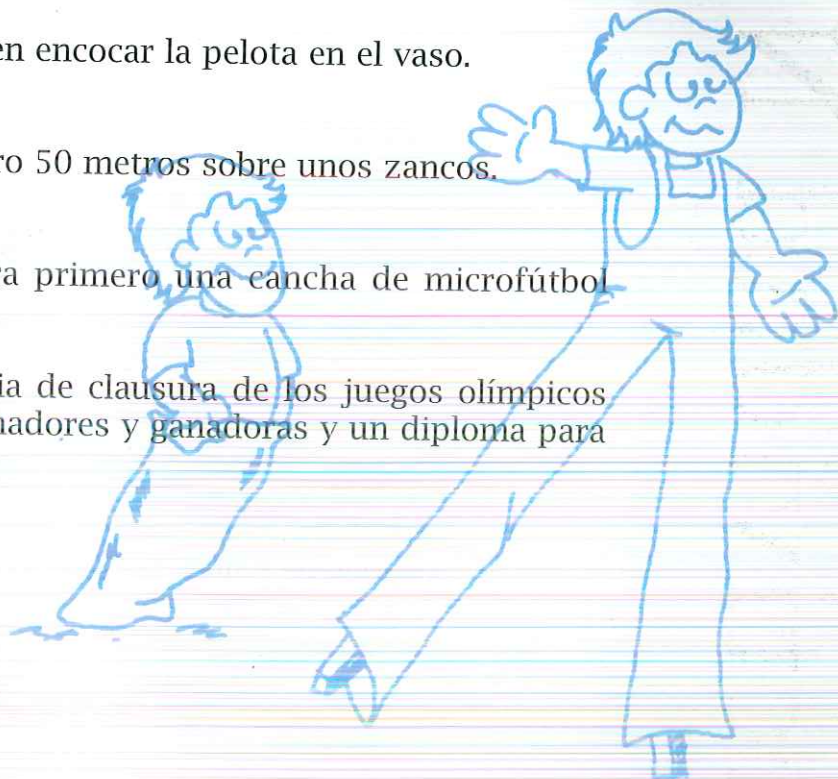 en encocar la pelota en el vaso.
ro 50 metros sobre unos zancos.
a primero una cancha de microfútbol
ia de clausura de los juegos olímpicos
nadores y ganadoras y un diploma para